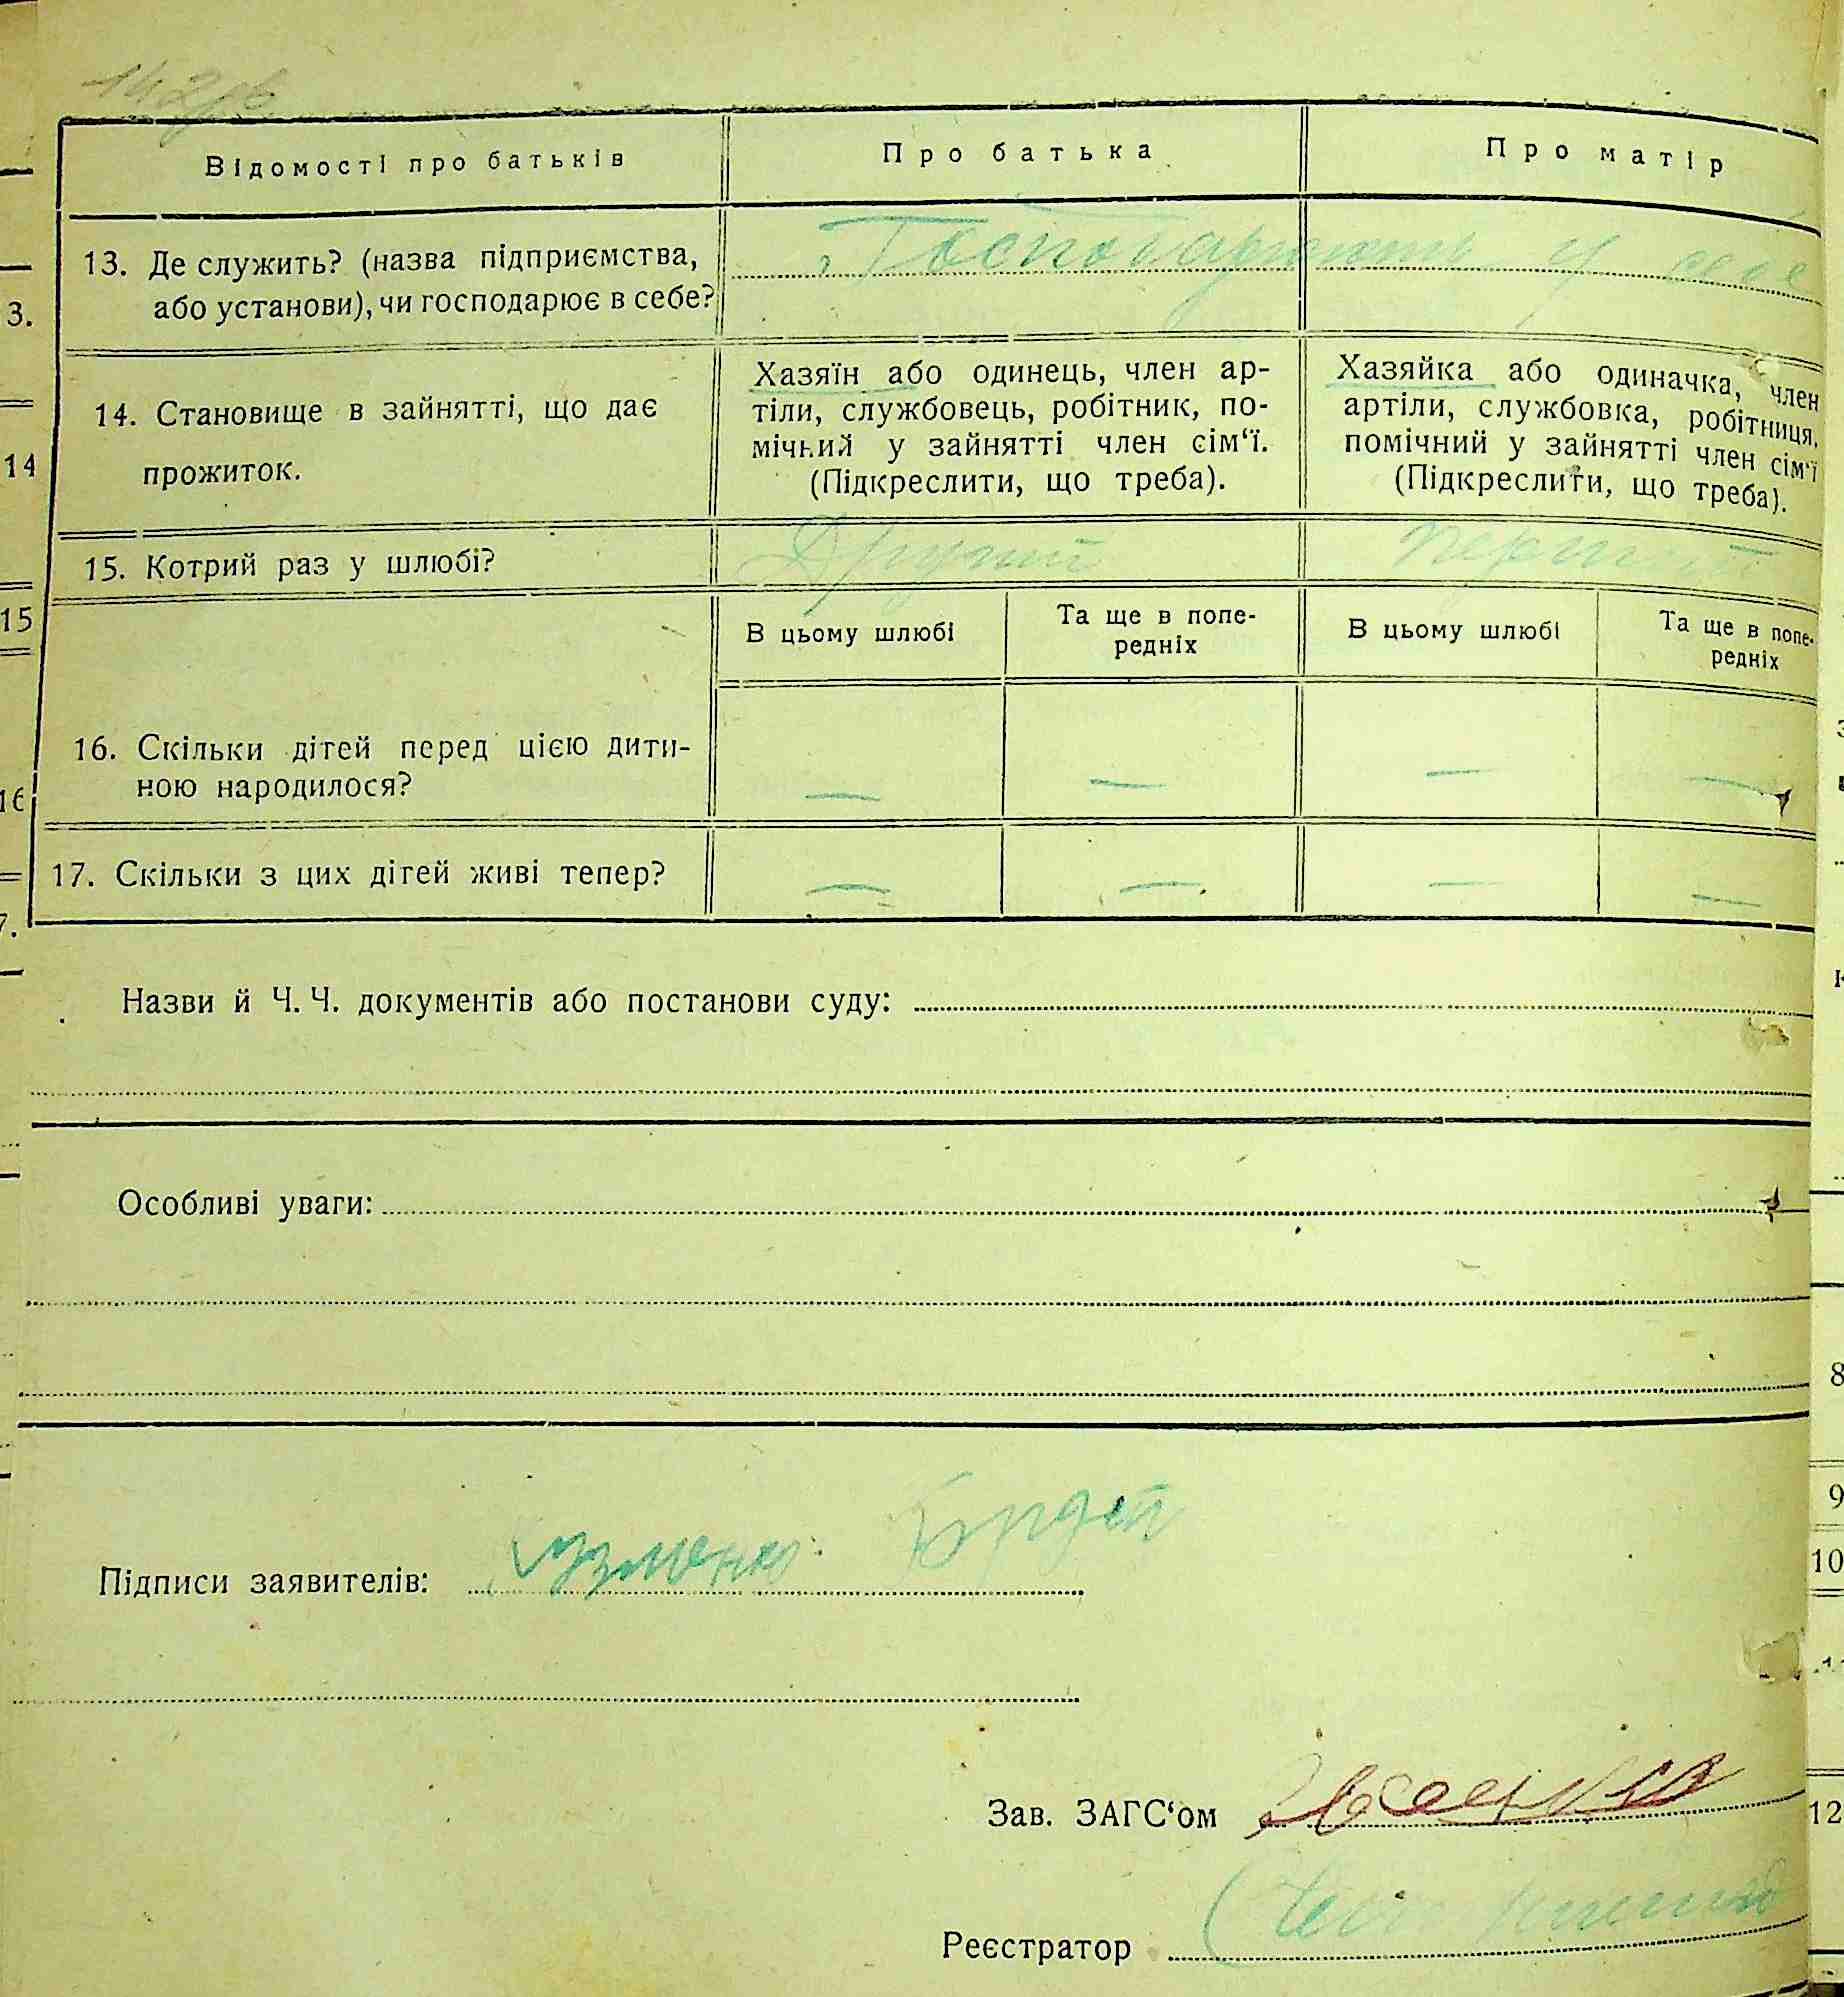 Відомості про батьків
Про батька
Про матір
13. Де служить? (назва підприємства,
або установи), чи господарює в себе?
Господарюють у
14. Становище в зайнятті, що дає
прожиток.
Хазяїн або одинець, член ар-
тіли, службовець, робітник, по-
мічний у зайнятті член сім‘ї.
(Підкреслити, що треба).
Хазяйка або одиначка, член
артіли, службовка, робітниця,
помічний у зайнятті член сім‘ї
(Підкреслити, що треба).
15. Котрий раз у шлюбі?
Другий
перший
В цьому шлюбі
Та ще в попе-
редніх
В цьому шлюбі
Та ще в попе-
редніх
16. Скільки дітей перед цією дити-
ною народилося?
— — — —
17. Скільки з цих дітей живі тепер?
— — — —
Назви й Ч. Ч. документів або постанови суду:
Особливі уваги:
Підписи заявителів:
Зав. ЗАГС‘ом
Реєстратор
3.
14
15
16
7.
8
9
10
12